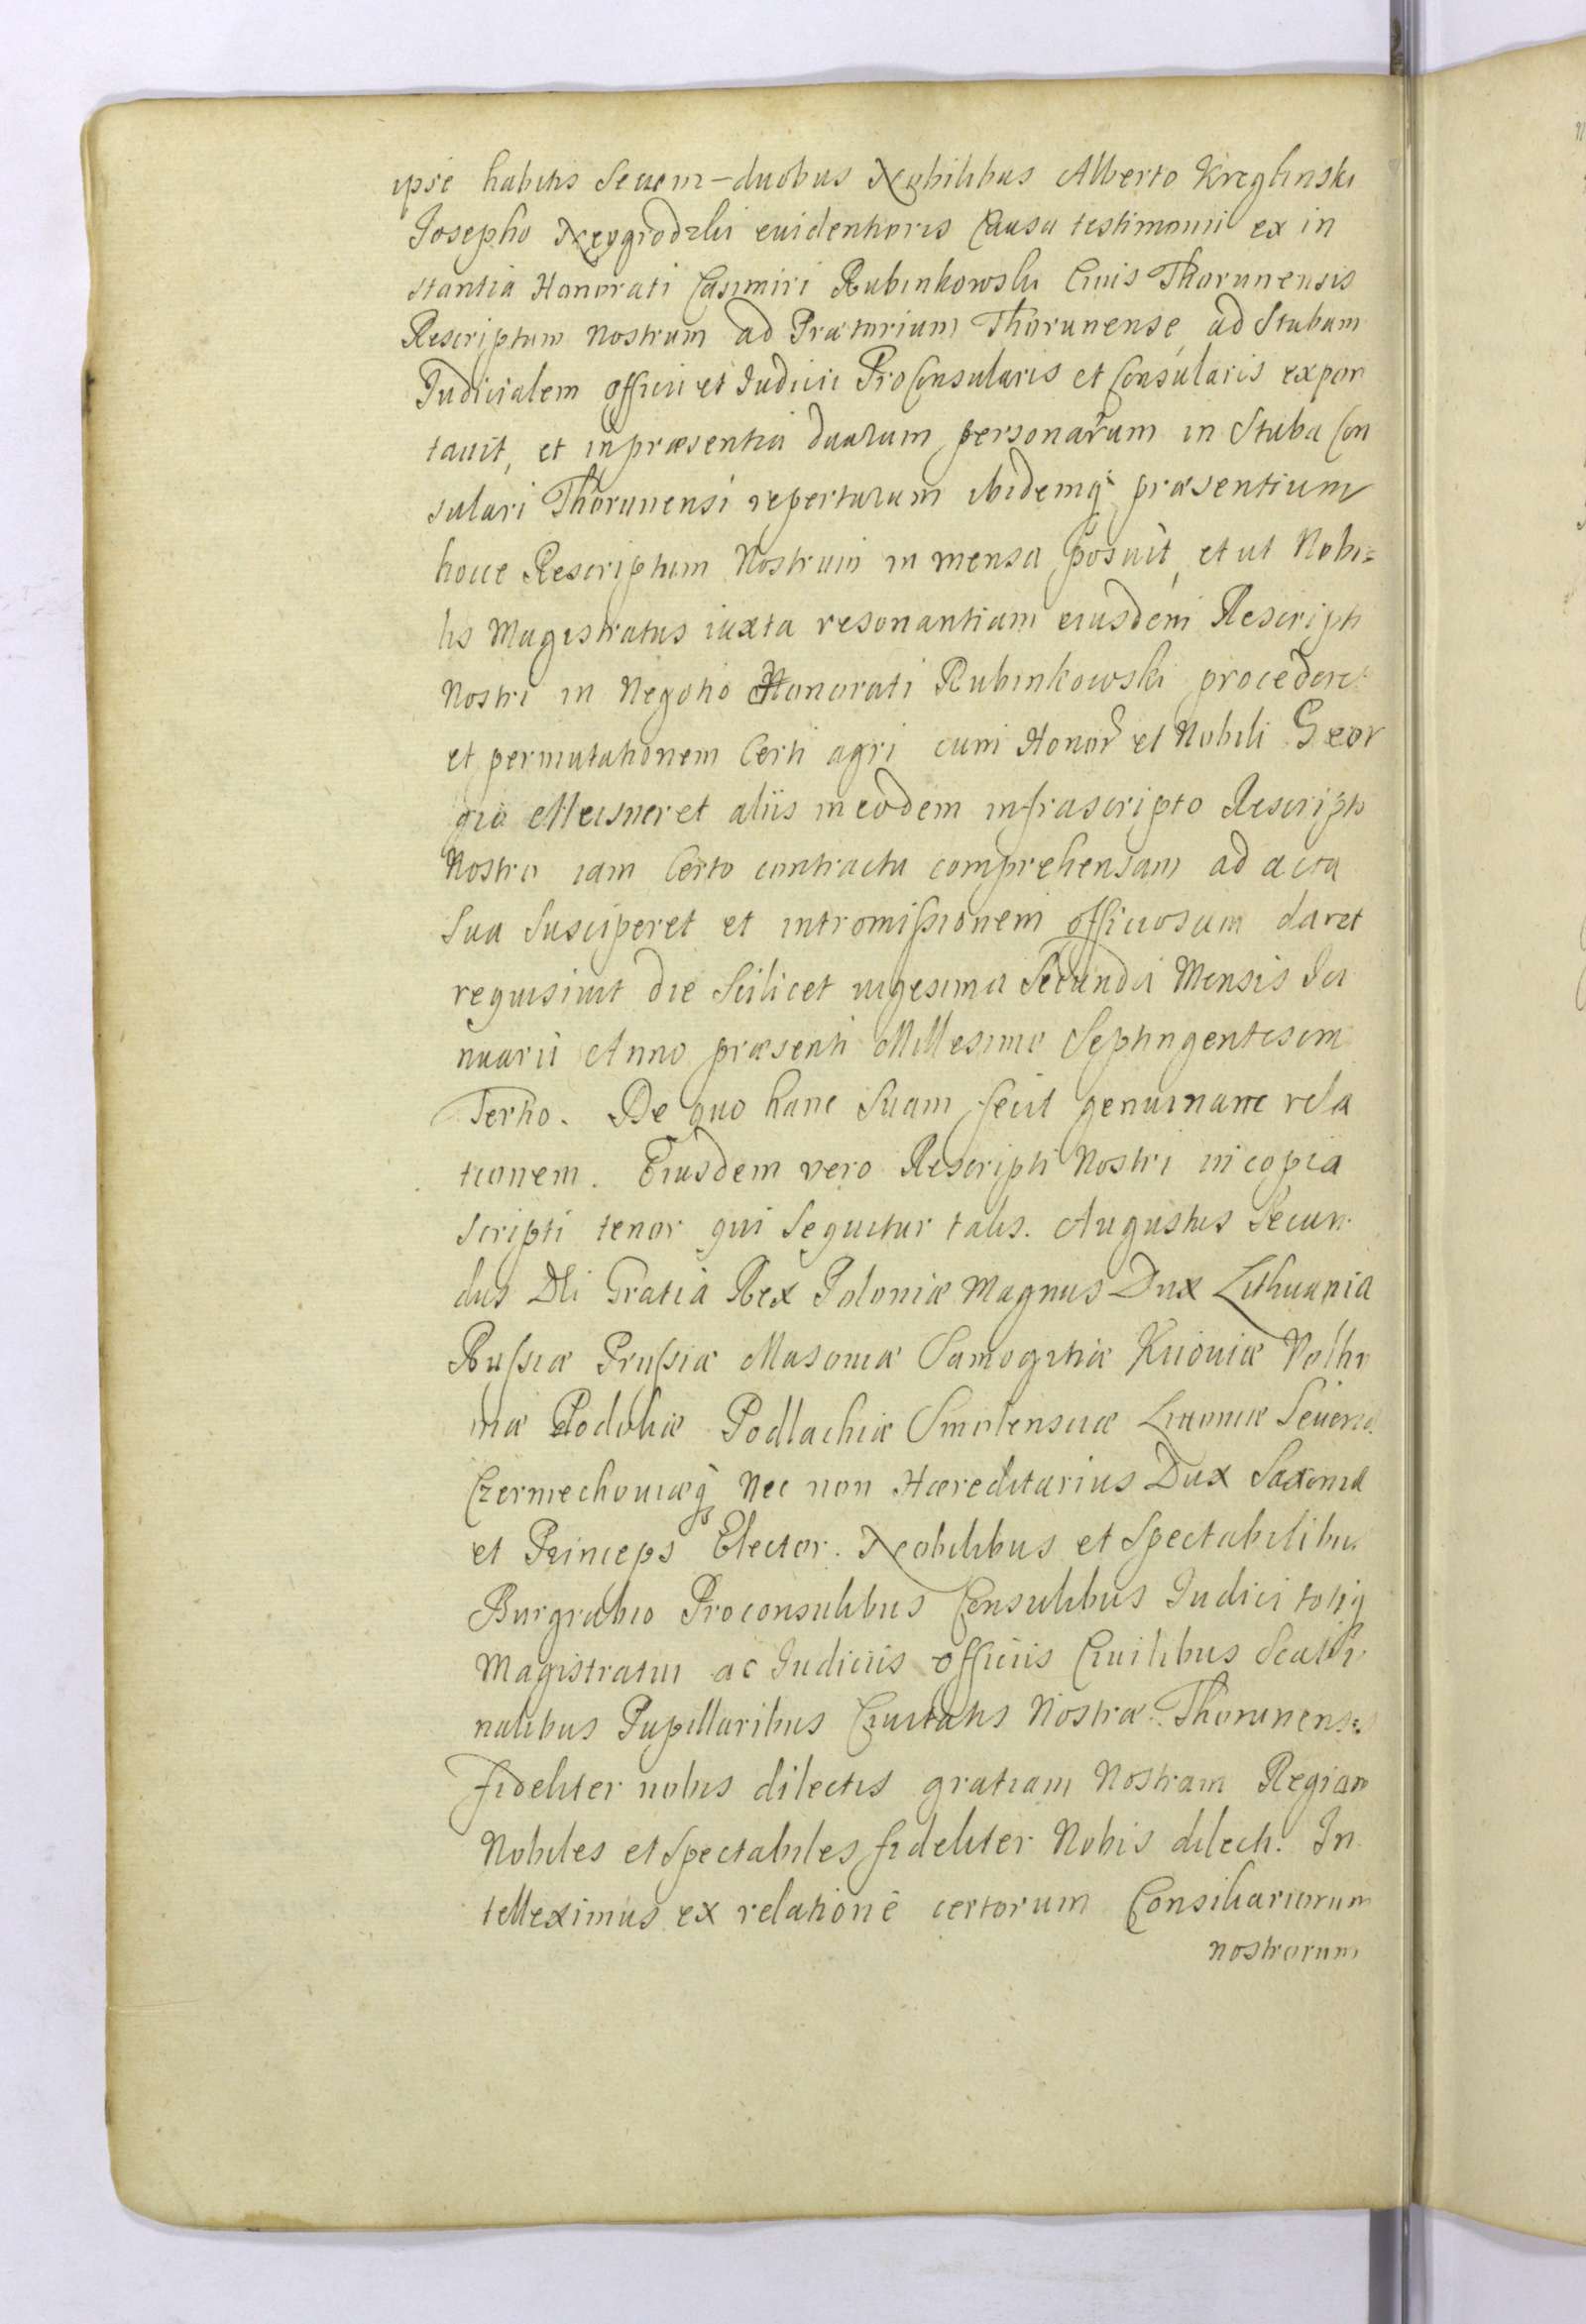 ipse habitis Secum duobus Nobilibus Alberto Kreglinski
Josepho Neygrodzki euidentioris Causa testimonii ex in
stantia Honorati Casimiri Rubinkowski Ciuis Thorunensis
Rescriptum Nostrum ad Prætorium Thorunense, ad Stubam
Judicialem Officii et Judicii ProConsularis et Consularis expor
tauit, et in præsentia duarum personarum in Stuba Con
sulari Thorunensi repertarum ibidemq præsentium
hocce Rescriptum Nostrum in mensa posuit, et ut Nobi=
lis Magistratus iuxta resonantiam eiusdem Rescripti
Nostri in Negotio Honorati Rubinkowski procederet
et permutationem Certi agri cum Honor et Nobili Geor
gio Meisner et aliis in eodem infrascripto Rescripto
Nostro iam Certo contractu comprehensam ad acta
Sua Susciperet et intromissionem officiosam daret
requisiuit die Scilicet uigesima Secunda Mensis Ja
nuarii Anno præsenti Millesimo Septingentesim
Tertio. De quo hanc Suam fecit genuinam rela
tionem. Eiusdem vero Rescripti Nostri in copia
scripti tenor qui Sequitur talis. Augustus Secun
dus Dei Gratia Rex Poloniæ Magnus Dux Lithuania
Russiæ Prussiæ Masouiæ Samogitiæ Kiiouiæ Volhi
niæ Podoliæ Podlachiæ Smolensciæ Liuoniæ Seueriæ
Czerniechouiæq Nec non Hæreditarius Dux Saxonia
et Princeps Elector. Nobilibus et Spectabilibus
Burgrabio Proconsulibus Consulibus Judici totiq
Magistratui ac Judiciis Officiis Ciuilibus Scabi
nalibus Pupillaribus Ciuitatis Nostræ Thorunensis
fideliter nobis dilectis gratiam Nostram Regiam
Nobiles et Spectabiles fideliter Nobis dilecti. In
telleximus ex relatione certorum Consiliariorum
nostrorum